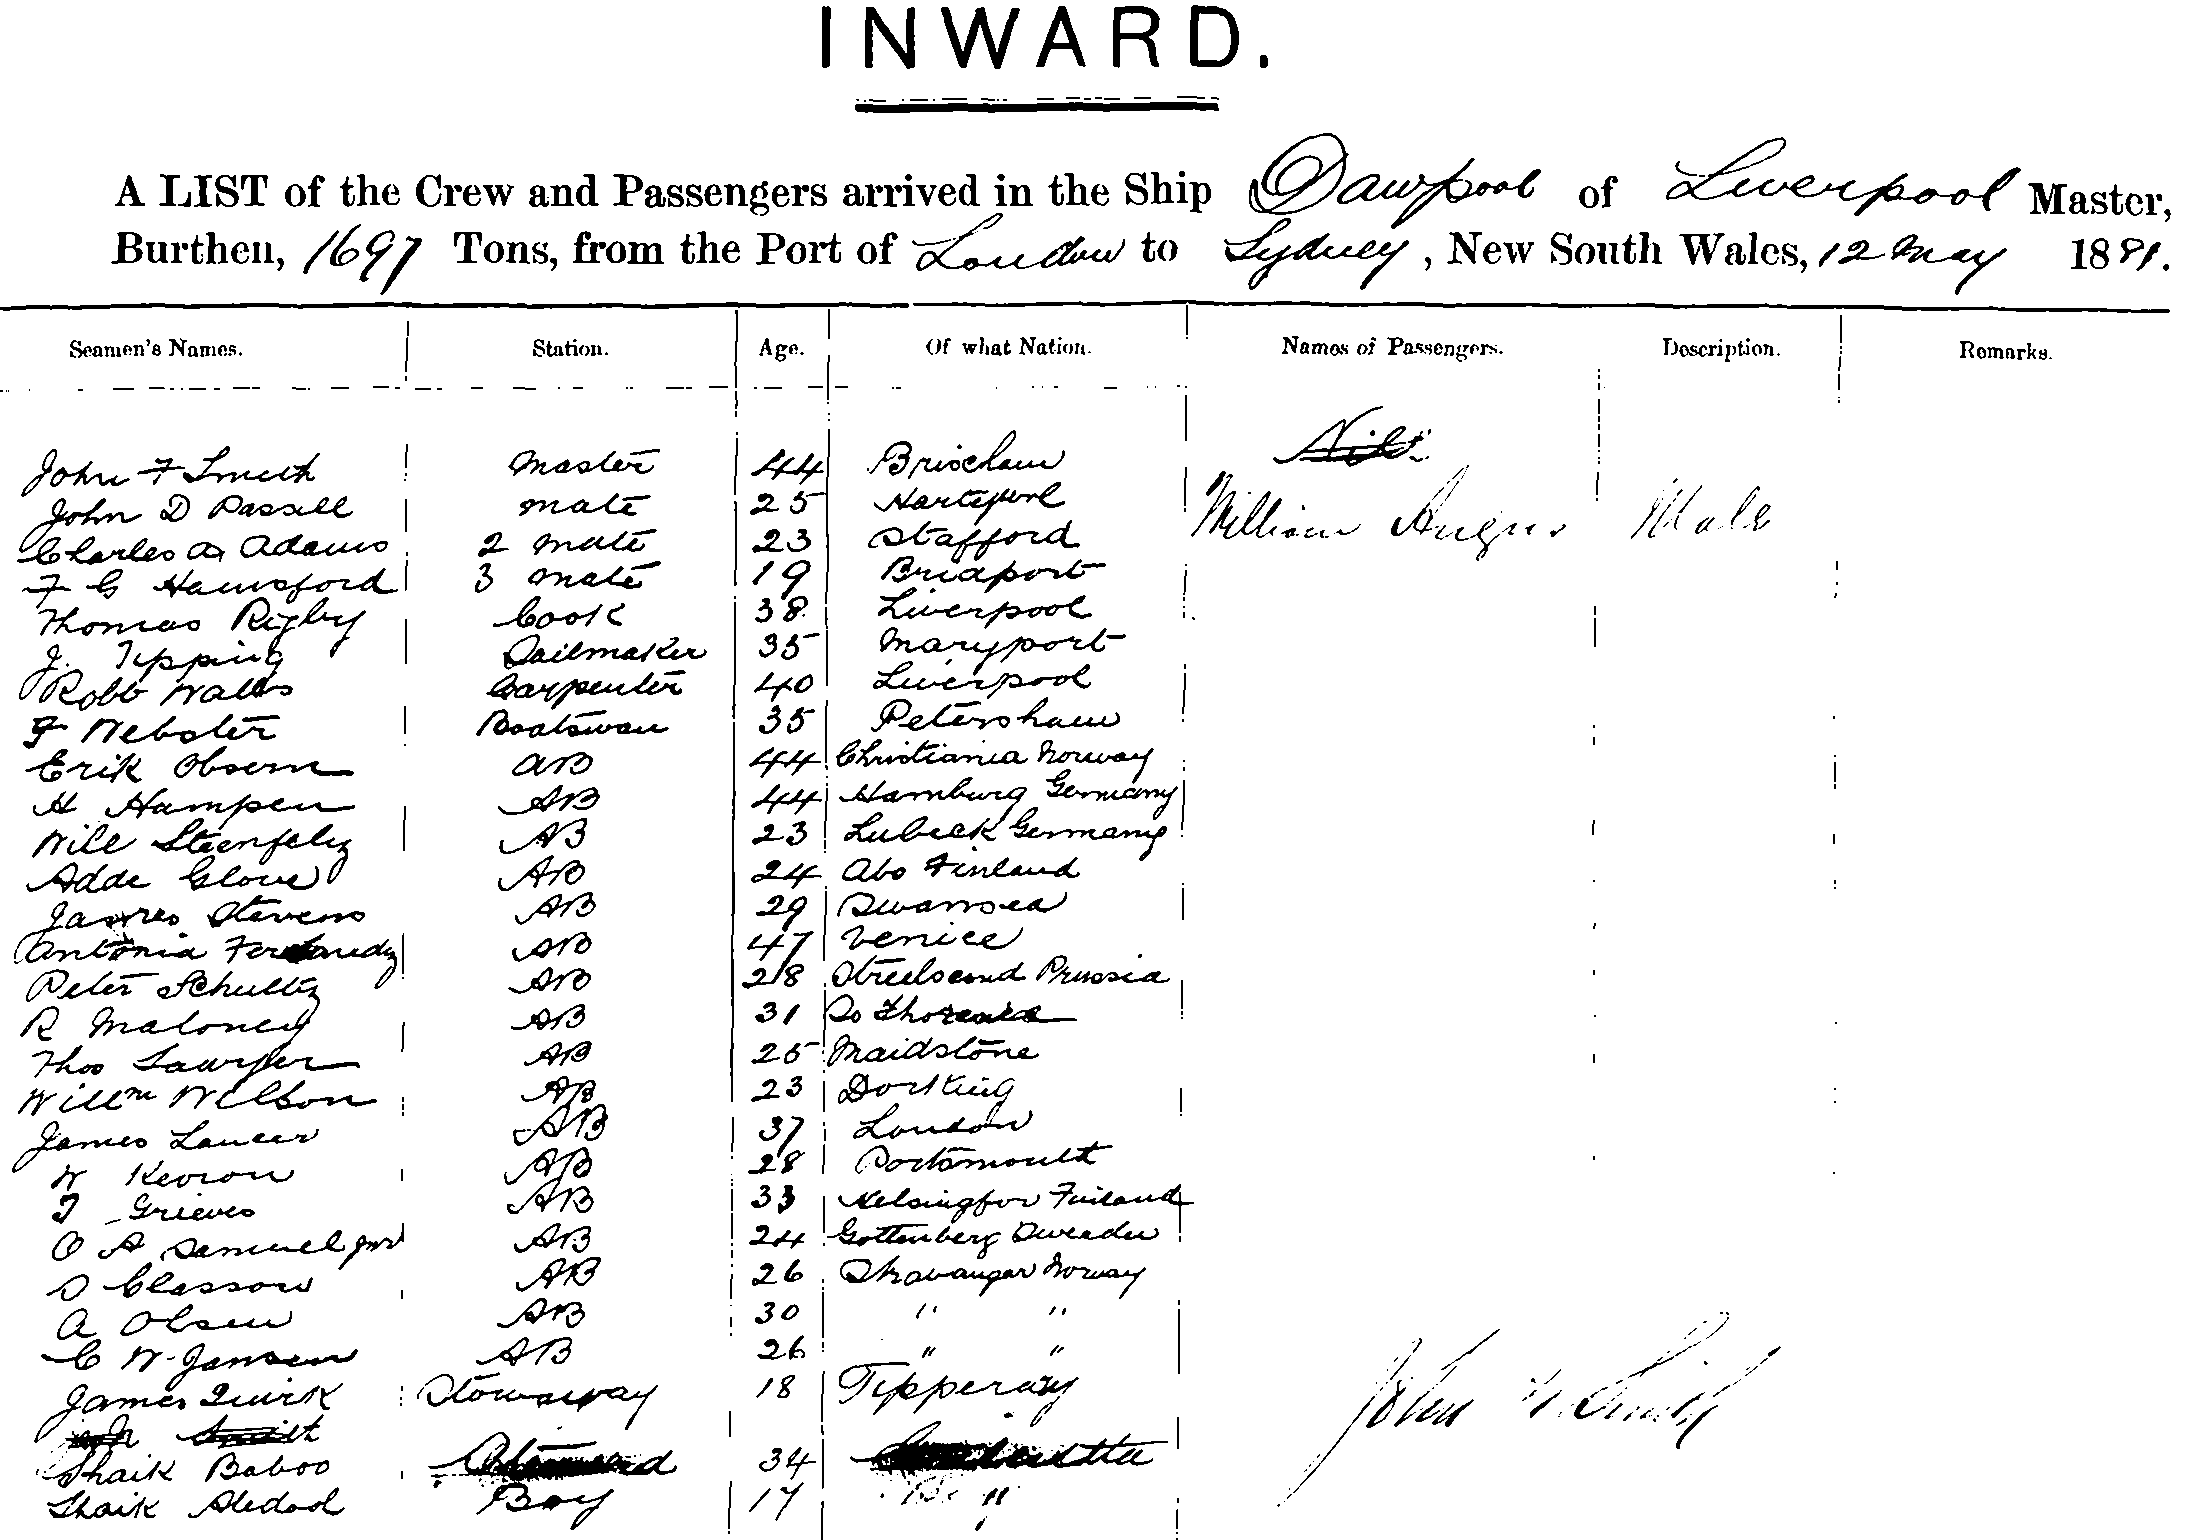 INWARD.
A LIST of the Crew and Passengers arrived in the Ship Dawpool of Liverpool Master,
Burthen, 1697 Tons, from the Port of London to Sydney, New South Wales, 12 May 1891.
Seamen's Names. Station. Age. Of what Nation. Names of Passengers. Description. Remarks.
Nil
John F Smith Master 44 Brixham
John D Passell Mate 25 Hartepool
William Angus Male
Charles A Adams 2 Mate 23 Stafford
F G Hansford 3 Mate 19 Bridport
Thomas Rigby Cook 38 Liverpool
J. Tipping Sailmaker 35 Maryport
Robt Watts Carpenter 40 Liverpool
F Webster Boatswan 35 Petersham
Erik AB 44 Christiania Norway
H Hampen AB 44 Hamburg Germany
Will AB 23 Lubeck Germany
Adde Glove AB 24 Abo Finland
James Stevens AB 29 Swansea
Antonia AB 47 Venice
Peter Schultz AB 28 Prussia
R Maloney AB 31 So
Thos Sawyer AB 25 Maidstone
Willm Wilson AB 23 Dorking
James AB 37 London
W AB 28 Portsmouth
J Grieves AB 33 Helsingfor Finland
O A Samuel AB 24 Gottenberg Sweaden
O Classon AB 26 Stravanger Norway
A Olsen AB 30 " "
C W Jansen AB 26 " "
James Quirk Stowaway 18 Tipperary
John F Smith
Smith
Shaik Baboo Steward 34 Calcutta
Shaik Boy 17 "